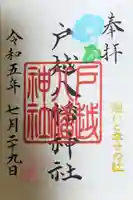 奉拝
戸越八幡神社
戸越
八幡
神社
令和五年七月二十九日